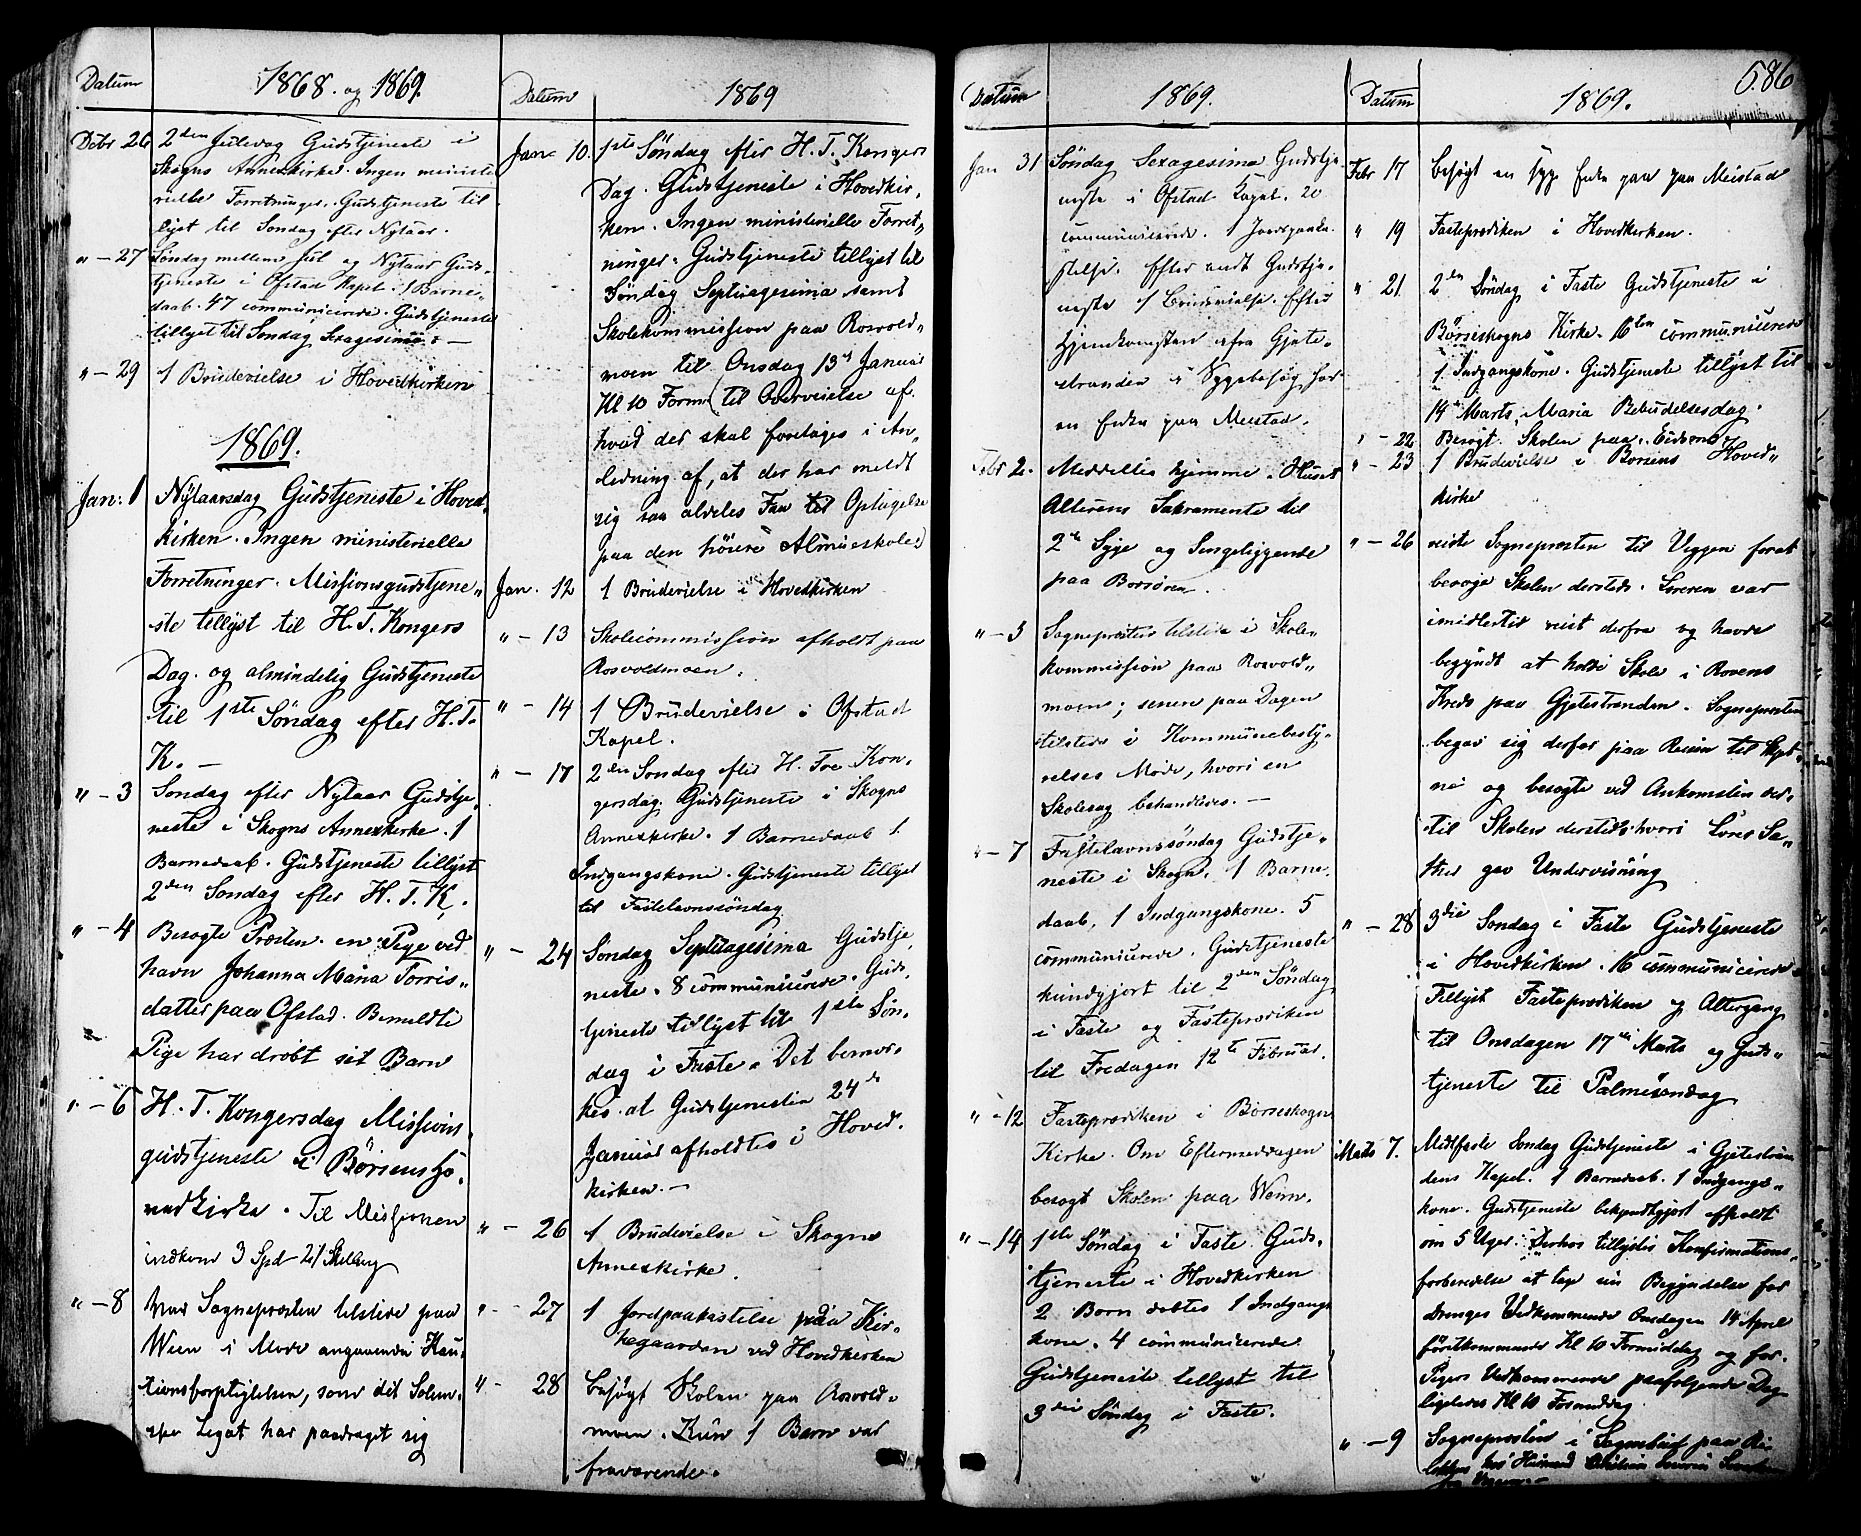 Datum
1868. og 1869.
Decbr 26
2den Juledag Gudstjeneste i
Skogns Annexkirke. Ingen ministe
rielle Forretninger. Gudstjeneste til
lyst til Søndag efter Nytaar.
" - 27
Søndag mellem Jul og Nytaar Guds-
tjeneste i Ofstad Kapel. 1 Barne-
daab. 47 communicerede. Gudstjeneste
tillyst til Søndag Sexagesima. -
" - 29
1 Brudevielse i Hovedkirken
1869.
Jan: 1
Nytaarsdag Gudstjeneste i Hoved-
kirken. Ingen ministerielle
Forretninger. Missionsgudstjene-
ste tillyst til H. T. Kongers
Dag. og almindelig Gudstjeneste
til 1ste Søndag efter H. T.
K. -
" - 3
Søndag efter Nytaar Gudstje-
neste i Skogns Annexkirke. 1
Barnedaab. Gudstjeneste tillyst
2den Søndag efter H. T. K.
" - 4
Besøgte Prosten en Pige ved
navn Johanna Maria Torris-
datter paa Ofstad. Bemeldte
Pige har dræbt sit Barn
" - 6
H. T. Kongersdag Missions
gudstjeneste i Børsens Ho-
vedkirke. Til Missionen
indkom 3 Spd 21 Skilling
" - 8
var Sogneprosten tilstede paa
Ween i Møde angaaende Kau-
tionsforpligtelsen, som det Solem-
ske Legat har paadraget sig
Datum
1869
Jan. 10.
1ste Søndag efter H. T. Kongers
Dag. Gudstjeneste i Hovedkir-
ken. Ingen ministerielle Forret-
ninger. Gudstjeneste tillyst til
Søndag Septuagesima samt
Skolekommission paa Rosvold-
moen til Onsdag 13de Januar
Kl 10 Form. (til Overveielse af
hvad der skal foretages i An-
ledning af, at der har meldt
sig saa aldeles Faa til Optagelse
paa den høiere Almueskole)
Jan. 12
1 Brudevielse i Hovedkirken
" - 13
Skolecommission afholdt paa
Rosvoldmoen.
" - 14
1 Brudevielse i Ofstad
Kapel.
" - 17
2den Søndag efter H. Tre Kon-
gersdag. Gudstjeneste i Skogns
Annexkirke. 1 Barnedaab 1
Indgangskone. Gudstjeneste tillyst
til Fastelavnssøndag
" - 24
Søndag Septuagesima Gudstje
neste. 8 communicerede. Guds-
tjeneste tillyst til 1ste Søn-
dag i Faste. Det bemær-
kes at Gudstjenesten 24de
Januar afholdtes i Hoved-
kirken. -
" - 26
1 Brudevielse i Skogns
Annexkirke.
" - 27
1 Jordpaakastelse paa Kir-
kegaarden ved Hovedkirken
" - 28
besøgt Skolen paa Rosvold-
moen. Kun 1 Barn var
fraværende.
Datum
1869.
Jan 31
Søndag Sexagesima Gudstje
neste i Ofstad Kapel. 20
communicerede. 1 Jordpaaka-
stelse. Efter endt Gudstje-
neste 1 Brudevielse. Efter
Hjemkomsten fra Gjete-
stranden i Sygebesøg hos
en Enke paa Meistad.
Febr 2.
Meddeltes hjemme i Huset
Alterens Sakramente til
2de Syge og Sengeliggende
paa Børsøren.
" - 3
Sogneprosten tilstede i Skole-
kommission paa Rosvold-
moen; senere paa Dagen
tilstede i Kommunebesty-
relses Møde, hvori en
Skolesag behandledes. -
" - 7
Fastelavnssøndag Gudstje-
neste i Skogn. 1 Barne-
daab, 1 Indgangskone. 5
communicerede. Gudstjeneste
kundgjort til 2den Søndag
i Faste og Fasteprædiken
til Fredagen 12te Februar.
" - 12
Fasteprædiken i Børseskogns
Kirke. Om Eftermiddagen
besøgt Skolen paa Ween.
" - 14
1ste Søndag i Faste. Guds-
tjeneste i Hovedkirken
2 Børn døbtes 1 Indgangs
kone. 4 communicerede.
Gudstjeneste tillyst til
3die Søndag i Faste.
Datum
1869.
586
Febr 17
besøgt en syg Enke paa paa Meistad
" 19
Fasteprædiken i Hovedkirken.
" 21
2den Søndag i Faste Gudstjeneste i
Børseskogns Kirke. 16ten communicerede
1 Indgangskone. Gudstjeneste tillyst til
14de Marts, Maria Bebudelsesdag.
" - 22
Besøgt Skolen paa Eidsmo
" - 23
1 Brudevielse i Børsens Hoved-
kirke
" - 26
reiste Sogneprosten til Viggen forat
besøge Skolen dersteds. Læreren var
imidlertid reist derfra og havde
begyndt at holde Skole i Rovens
Kreds paa Gjetestranden. Sogneprosten
begav sig derfor paa Reisen til
og besøgte ved Ankomsten der-
til Skolen dersteds, hvori Lærer Sæ-
ther gav Undervisning
" - 28
3die Søndag i Faste Gudstjeneste
i Hovedkirken. 16 communicerede
Tillyst Fasteprædiken og Altergang
til Onsdagen 17de Marts og Guds-
tjeneste til Palmesøndag
Marts 7.
Midfaste Søndag Gudstjeneste i Gjetestran
dens Kapel. 1 Barnedaab. 1 Indgangs-
kone. Gudstjeneste bekjendtgjort afholdt
om 5 Uger. Derhos tillystes Konfirmations-
forberedelse at tage sin Begyndelse for
Drenges Vedkommende Onsdagen 14de April
førstkommende Kl 10 Formiddag og for
Pigers Vedkommende paafølgende Dag
ligeledes Kl 10 Formiddag.
" - 9
Sogneprosten i Sognebud paa
hos Husmand